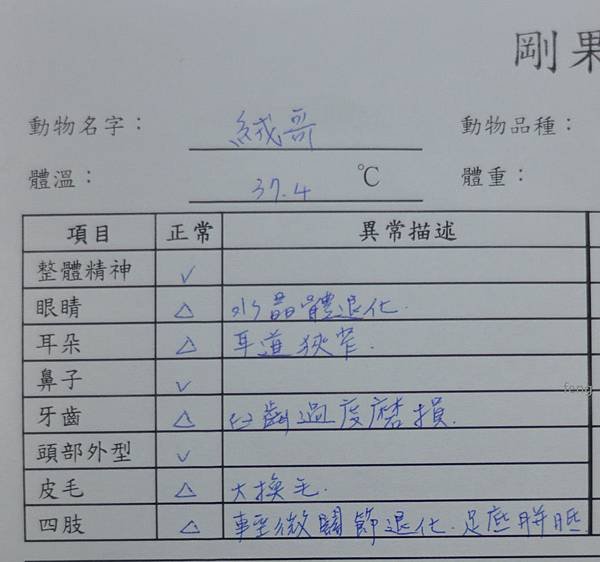 剛果
動物名字： 絨哥 動物品種：
體溫： 37.4 ℃ 體重：
項目 正常 異常描述
整體精神 ✓
眼睛 △ 水晶體退化.
耳朵 △ 耳道狹窄.
鼻子 ✓
牙齒 △ 臼齒過度磨損.
頭部外型 ✓
皮毛 △ 大換毛.
四肢 △ 輕微關節退化.足底胼胝
fong